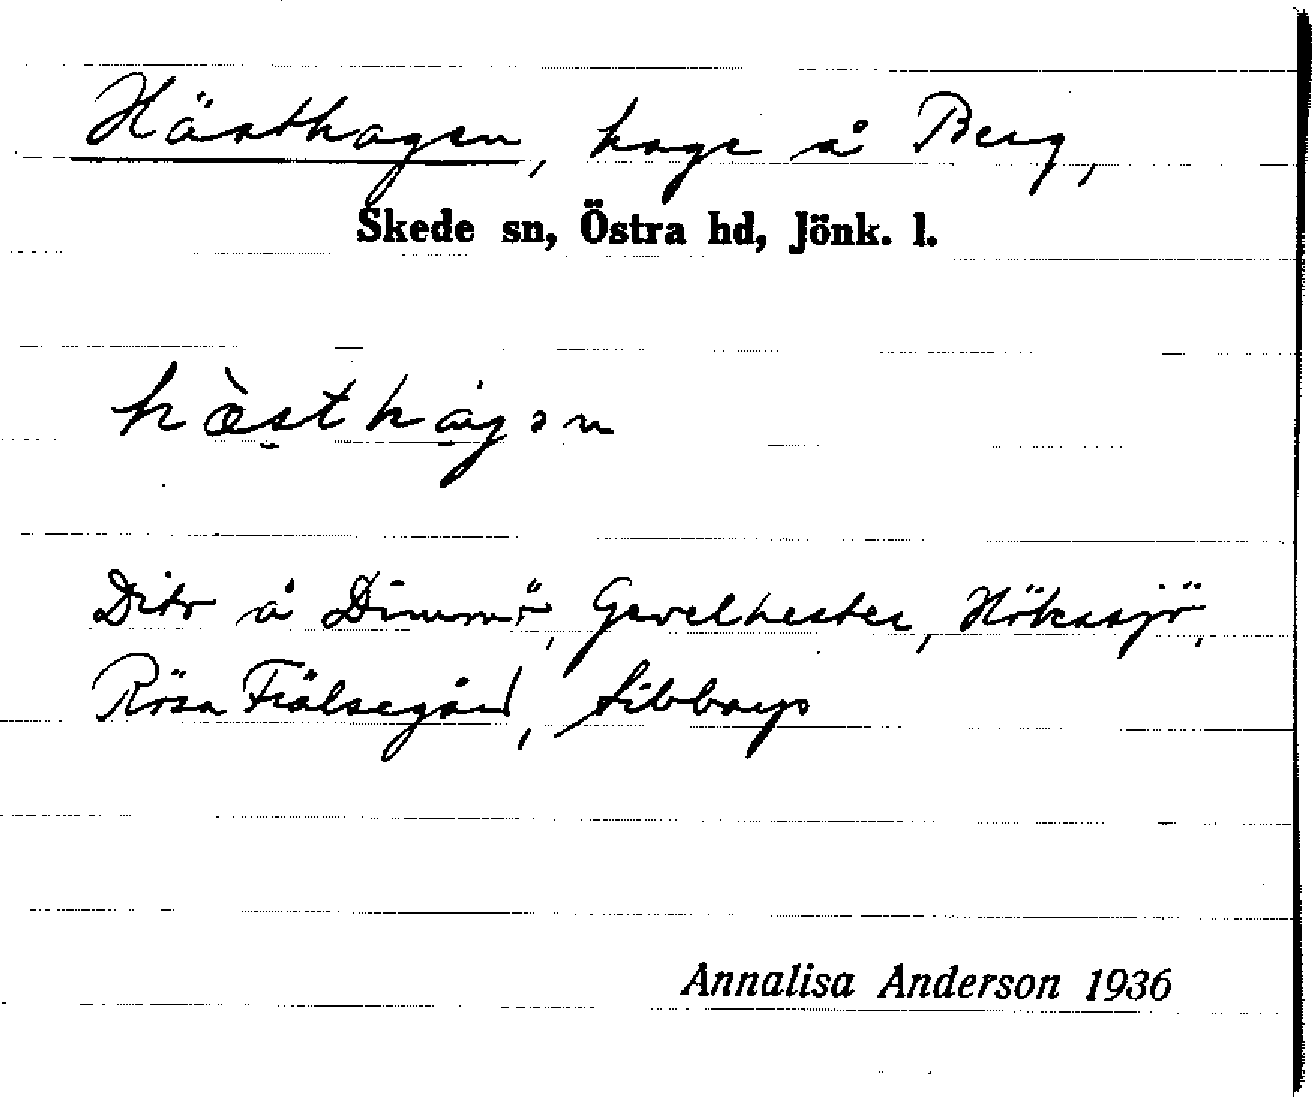 Hästhagen, hage å Berg,
Skede sn, Östra hd, Jönk. l.
hæ̀sthágən
Dito å Dimmö, Gevelhester, Hökasjö,
Rösa Frälsegård, Sibbarp
Annalisa Anderson 1936